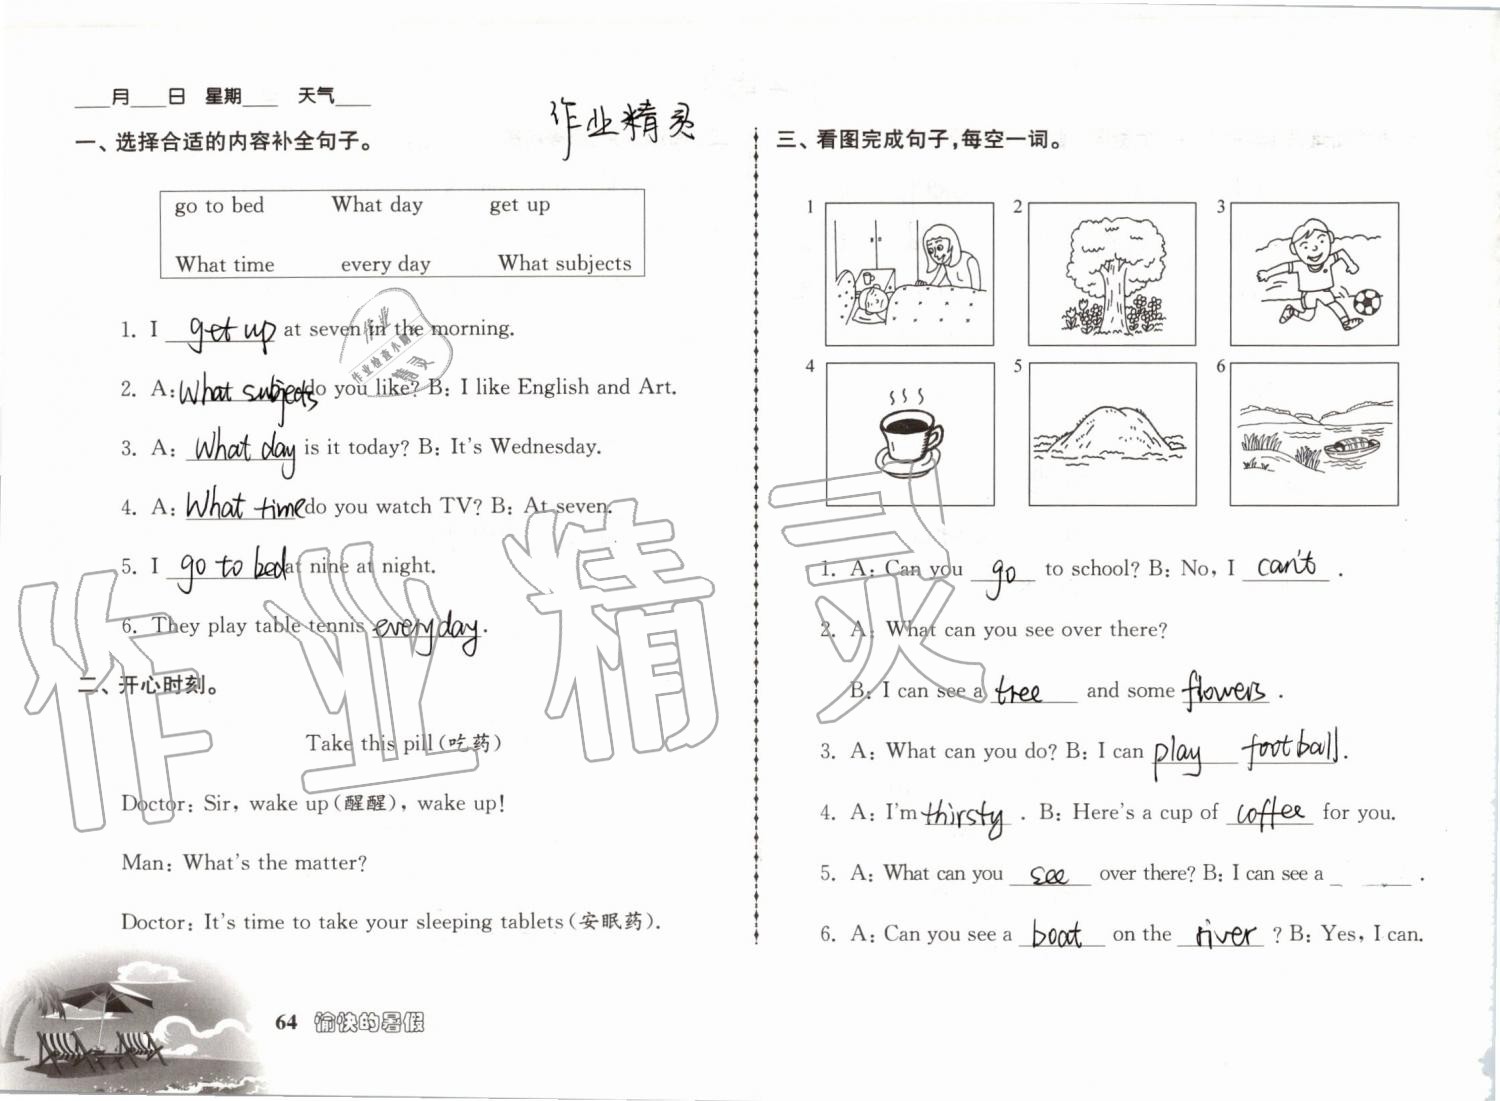 ____月____日 星期____ 天气____
作业精灵
一、选择合适的内容补全句子。
go to bed What day get up
What time every day What subjects
1. I get up at seven in the morning.
2. A: What subjects do you like? B: I like English and Art.
3. A: What day is it today? B: It's Wednesday.
4. A: What time do you watch TV? B: At seven.
5. I go to bed at nine at night.
6. They play table tennis every day.
二、开心时刻。
Take this pill(吃药)
Doctor: Sir, wake up(醒醒), wake up!
Man: What's the matter?
Doctor: It's time to take your sleeping tablets(安眠药).
64 愉快的暑假
三、看图完成句子,每空一词。
1 2 3
4 5 6
1. A: Can you go to school? B: No, I can't .
2. A: What can you see over there?
B: I can see a tree and some flowers .
3. A: What can you do? B: I can play football.
4. A: I'm thirsty . B: Here's a cup of coffee for you.
5. A: What can you see over there? B: I can see a ____ .
6. A: Can you see a boat on the river ? B: Yes, I can.
作业精灵
作业
作业检查小助手
精灵